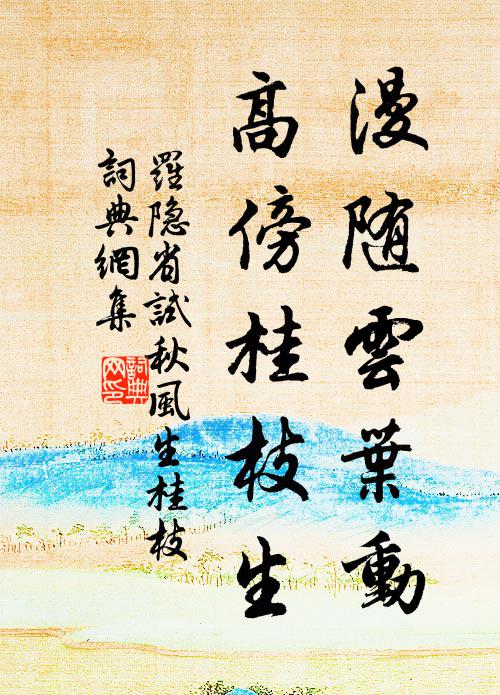 漫随雲葉動
高傍桂枝生
羅隐省試秋風生桂枝
詞典網集
詞典
网印